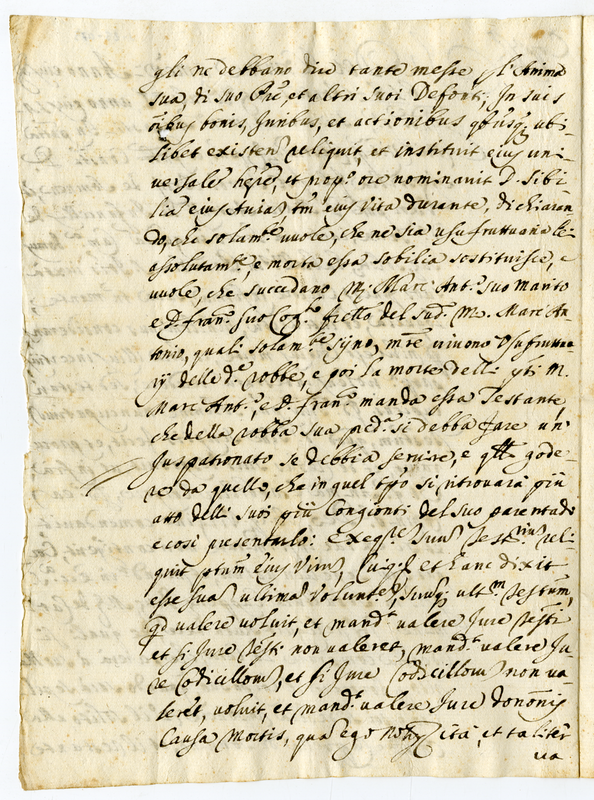 gli ne debbano dire tante messe p l'Anima
sua, di suo Pre, et altri suoi Defonti; In suis
oibus bonis, Juribus, et actionibus ubi-
libet existen reliquit, et instituit eius uni-
versale herede, et prop.o ore nominavit D. Sibi-
lia eius Avia tm eius vita durante, dichiaran
do, che solam.te vuole, che ne sia usufruttuaria lei
assolutam.te, e morta essa Sobilia sostituisce, e
vuole, che succedano M. Marc Ant.o suo marito
e D. fran.o suo Cog.to fratello del sud.o M. Marc An-
tonio, quali solam.te siano, mre vivono Usufruttua
rij delle d.e robbe, e poi la morte delli pti M.
Marc Ant.o, e D. fran.o manda essa Testante,
che della robba sua pred.a si debba fare un
Juspatronato se debbia servire, e gode
re da quello, che in quel tpo si ritrovarà più
atto delli suoi più Congionti del suo parentado
e così presentarlo: Exeq.re suu Test.rium reli-
quit ptum eius Viru, et hanc dixit
esse sua ultima volunte, suuq ult.m testum,
qd valere voluit, et mand.t valere Jure testi
et si Jure testi non valeret, mand.t valere Ju
re Codicillom, et si Jure Codicillom non va-
leret, voluit, et mand.t valere Jure dononis
Causa Mortis, qua ego not ita, et taliter
ua